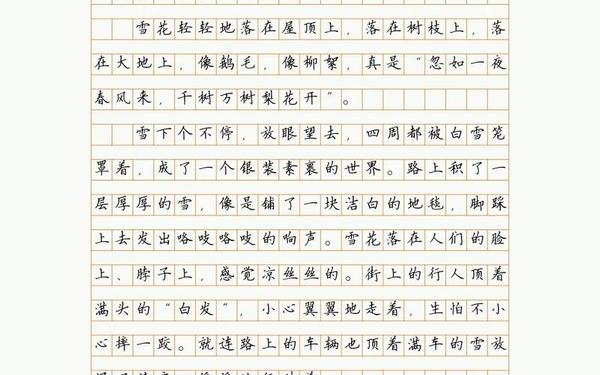 雪花轻轻地落在屋顶上，落在树枝上，落
在大地上，像鹅毛，像柳絮，真是“忽如一夜
春风来，千树万树梨花开”。
雪下个不停，放眼望去，四周都被白雪笼
罩着，成了一个银装素裹的世界。路上积了一
层厚厚的雪，像是铺了一块洁白的地毯，脚踩
上去发出咯吱咯吱的响声。雪花落在人们的脸
上、脖子上，感觉凉丝丝的。街上的行人顶着
满头的“白发”，小心翼翼地走着，生怕不小
心摔一跤。就连路上的车辆也顶着满车的雪放